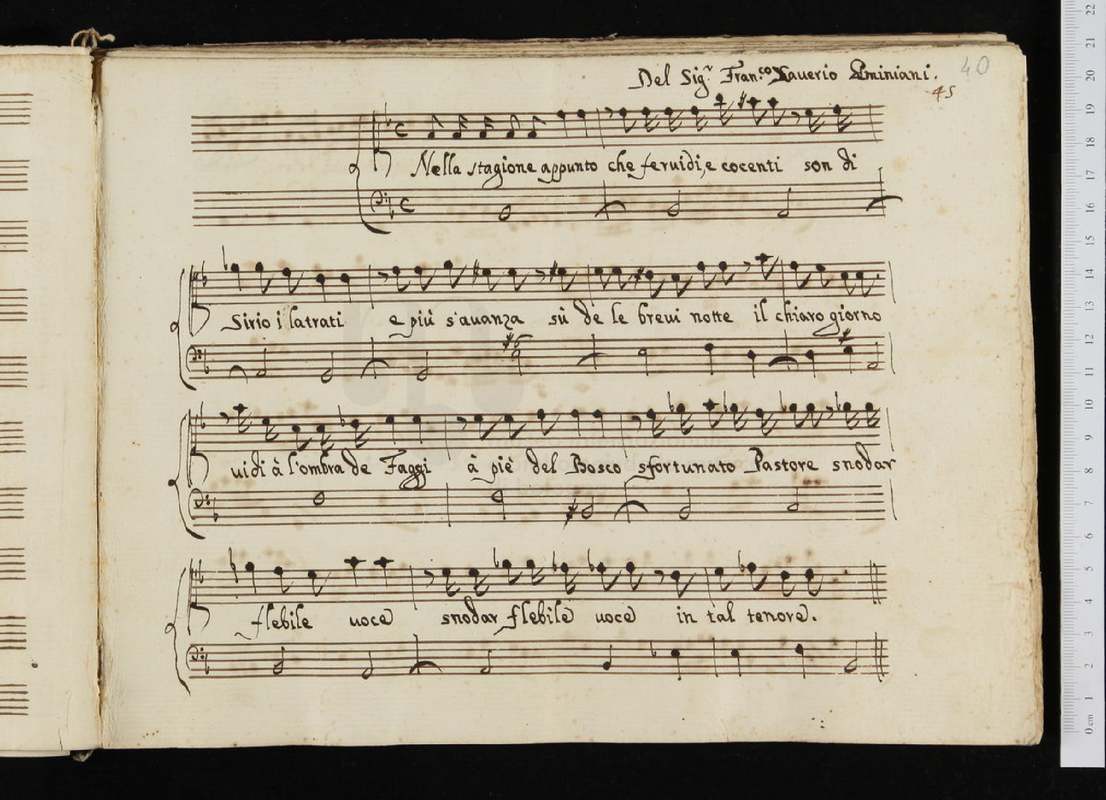 Del Sig.r Fran.co Xaverio Geminiani. 40
45
Nella stagione appunto che feruidi, e cocenti son di
Sirio i latrati e più s'auanza sù de le breui notte il chiaro giorno
uidi à l'ombra de Faggi à piè del Bosco sfortunato Pastore snodar
flebile uoce snodar flebile uoce in tal tenore.